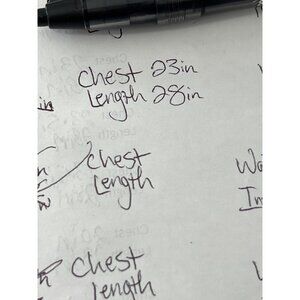 Chest 23in
Length 28in
in
Chest
Length
Chest
Length